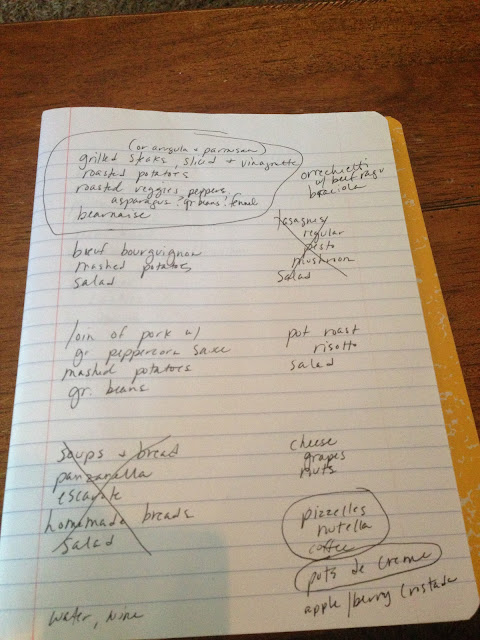 (or arugula + parmesan)
grilled steaks, sliced + vinagrette
roasted potatoes
roasted veggies, peppers,
asparagus? gr. beans? fennel
bearnaise
orrechietti
w/ beef ragu
braciola
boeuf bourguignon
mashed potatoes
salad
lasagnas
regular
pesto
mushroom
salad
loin of pork w/
gr peppercorn sauce
mashed potatoes
gr. beans
pot roast
risotto
salad
soups + bread
panzanalla
escarole
homemade breads
salad
cheese
grapes
nuts
pizzelles
nutella
coffee
pots de creme
apple/berry cristada
water, wine